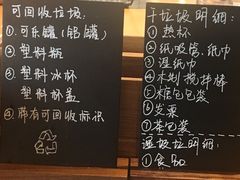 可回收垃圾:
① 可乐罐(铝罐)
② 塑料瓶
③ 塑料冰杯
塑料杯盖
④ 带有可回收标识
干垃圾明细:
① 热杯
② 纸吸管,纸巾
③ 湿纸巾
④ 木制搅拌棒
⑤ 糖包包装
⑥ 发票
⑦ 茶包装
湿垃圾明细:
① 食物